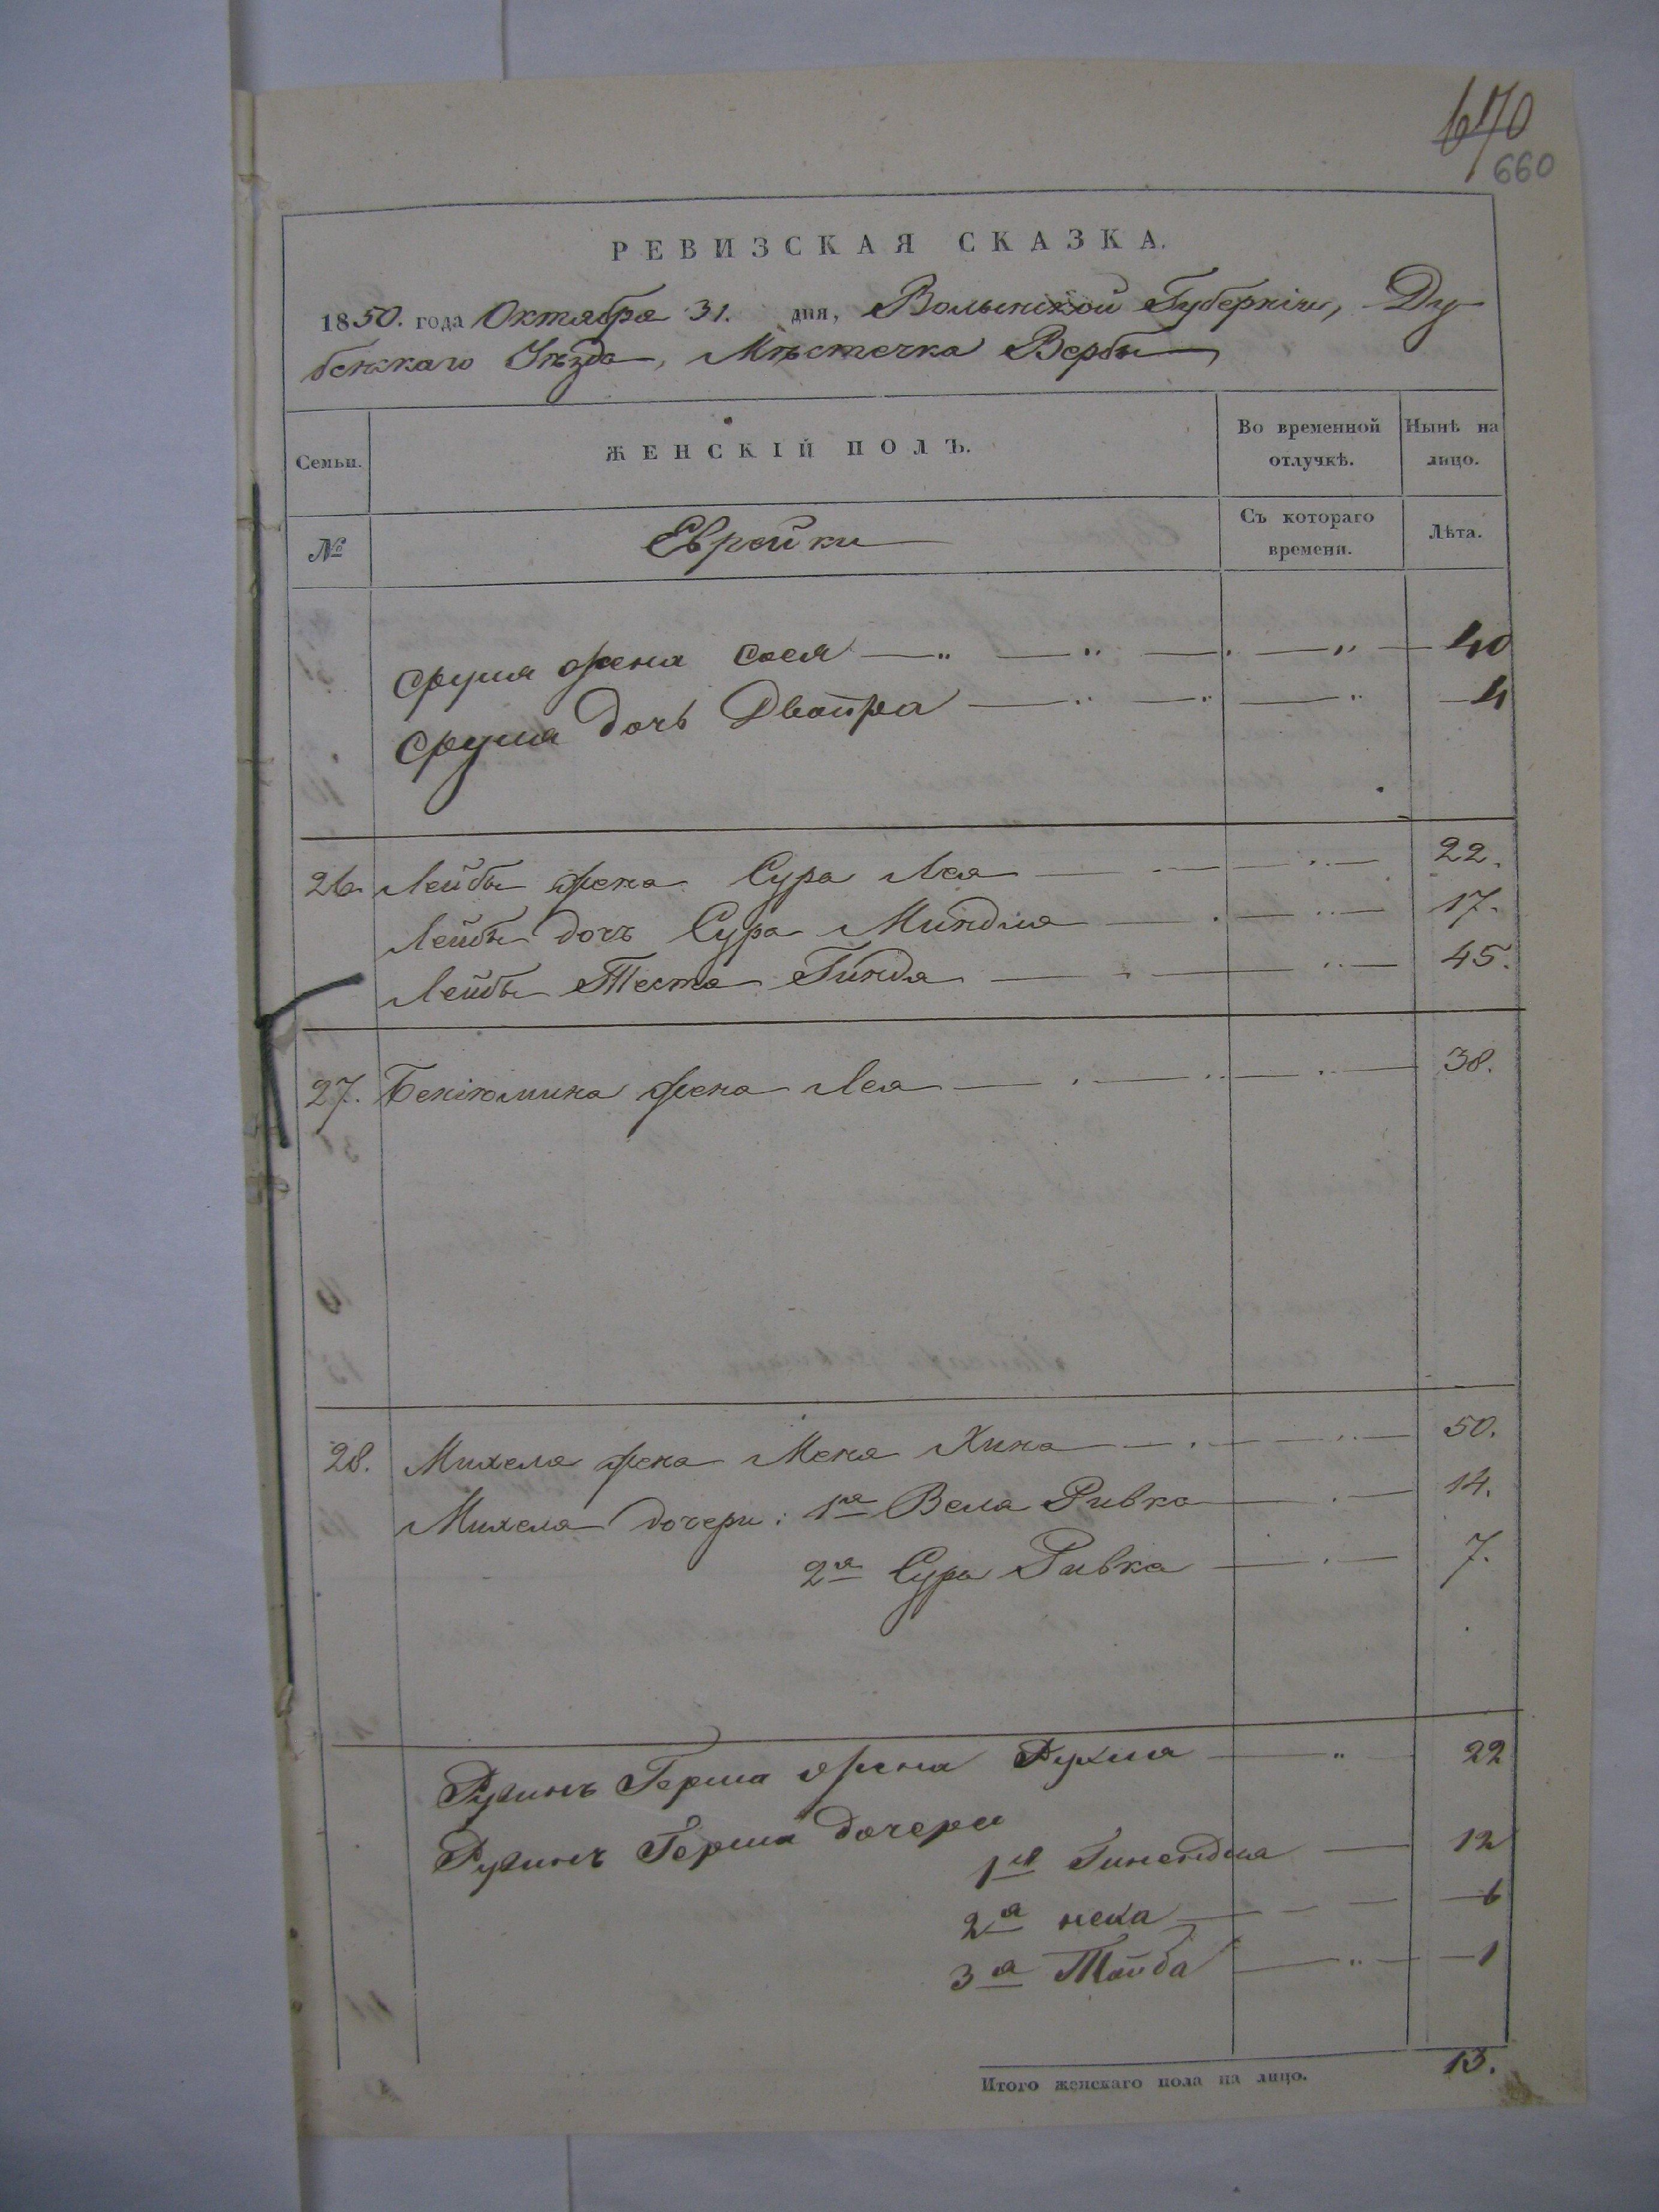 670
660
РЕВИЗСКАЯ СКАЗКА.
1850. года Октября 31. дня, Волынской Губернiи, Ду
бенскаго Уѣзда, Мѣстечка Вербы
Семьи.
ЖЕНСКІЙ ПОЛЪ.
Во временной отлучкѣ.
Нынѣ на лицо.
№
Еврейки
Съ котораго времени.
Лѣта.
Сруля жена Сося 40
Сруля дочь Двойра 4
26. Лейбы жена Сура Лея 22.
Лейбы дочь Сура Миндля 17.
Лейбы Теста Гинда 45.
27. Бенiюмина жена Лея 38.
28. Михеля жена Меня Хина 50.
Михеля дочери: 1я Вела Ривка 14.
2я Сура Ривка 7.
Герша жена Рухля 22
Герша дочери
1я Гинендля 12
2я неха 6
3я Тайба 1
Итого женскаго пола на лицо. 13.